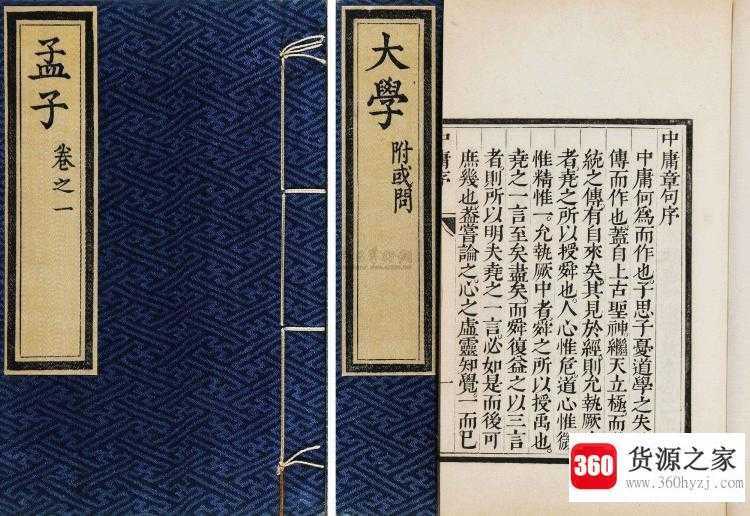 孟子
卷之一
大學
附或問
中庸章句序
中庸何爲而作也。子思子憂道學之失
傳而作也。蓋自上古聖神繼天立極。而
統之傳有自來矣。其見於經。則允執厥
者。堯之所以授舜也。人心惟危。道心惟微
惟精惟一。允執厥中者。舜之所以授禹也。
堯之一言。至矣盡矣。而舜復益之以三言
者。則所以明夫堯之一言。必如是而後可
庶幾也。蓋嘗論之。心之虛靈知覺。一而已
360
货源之家
www.360hyzj.com